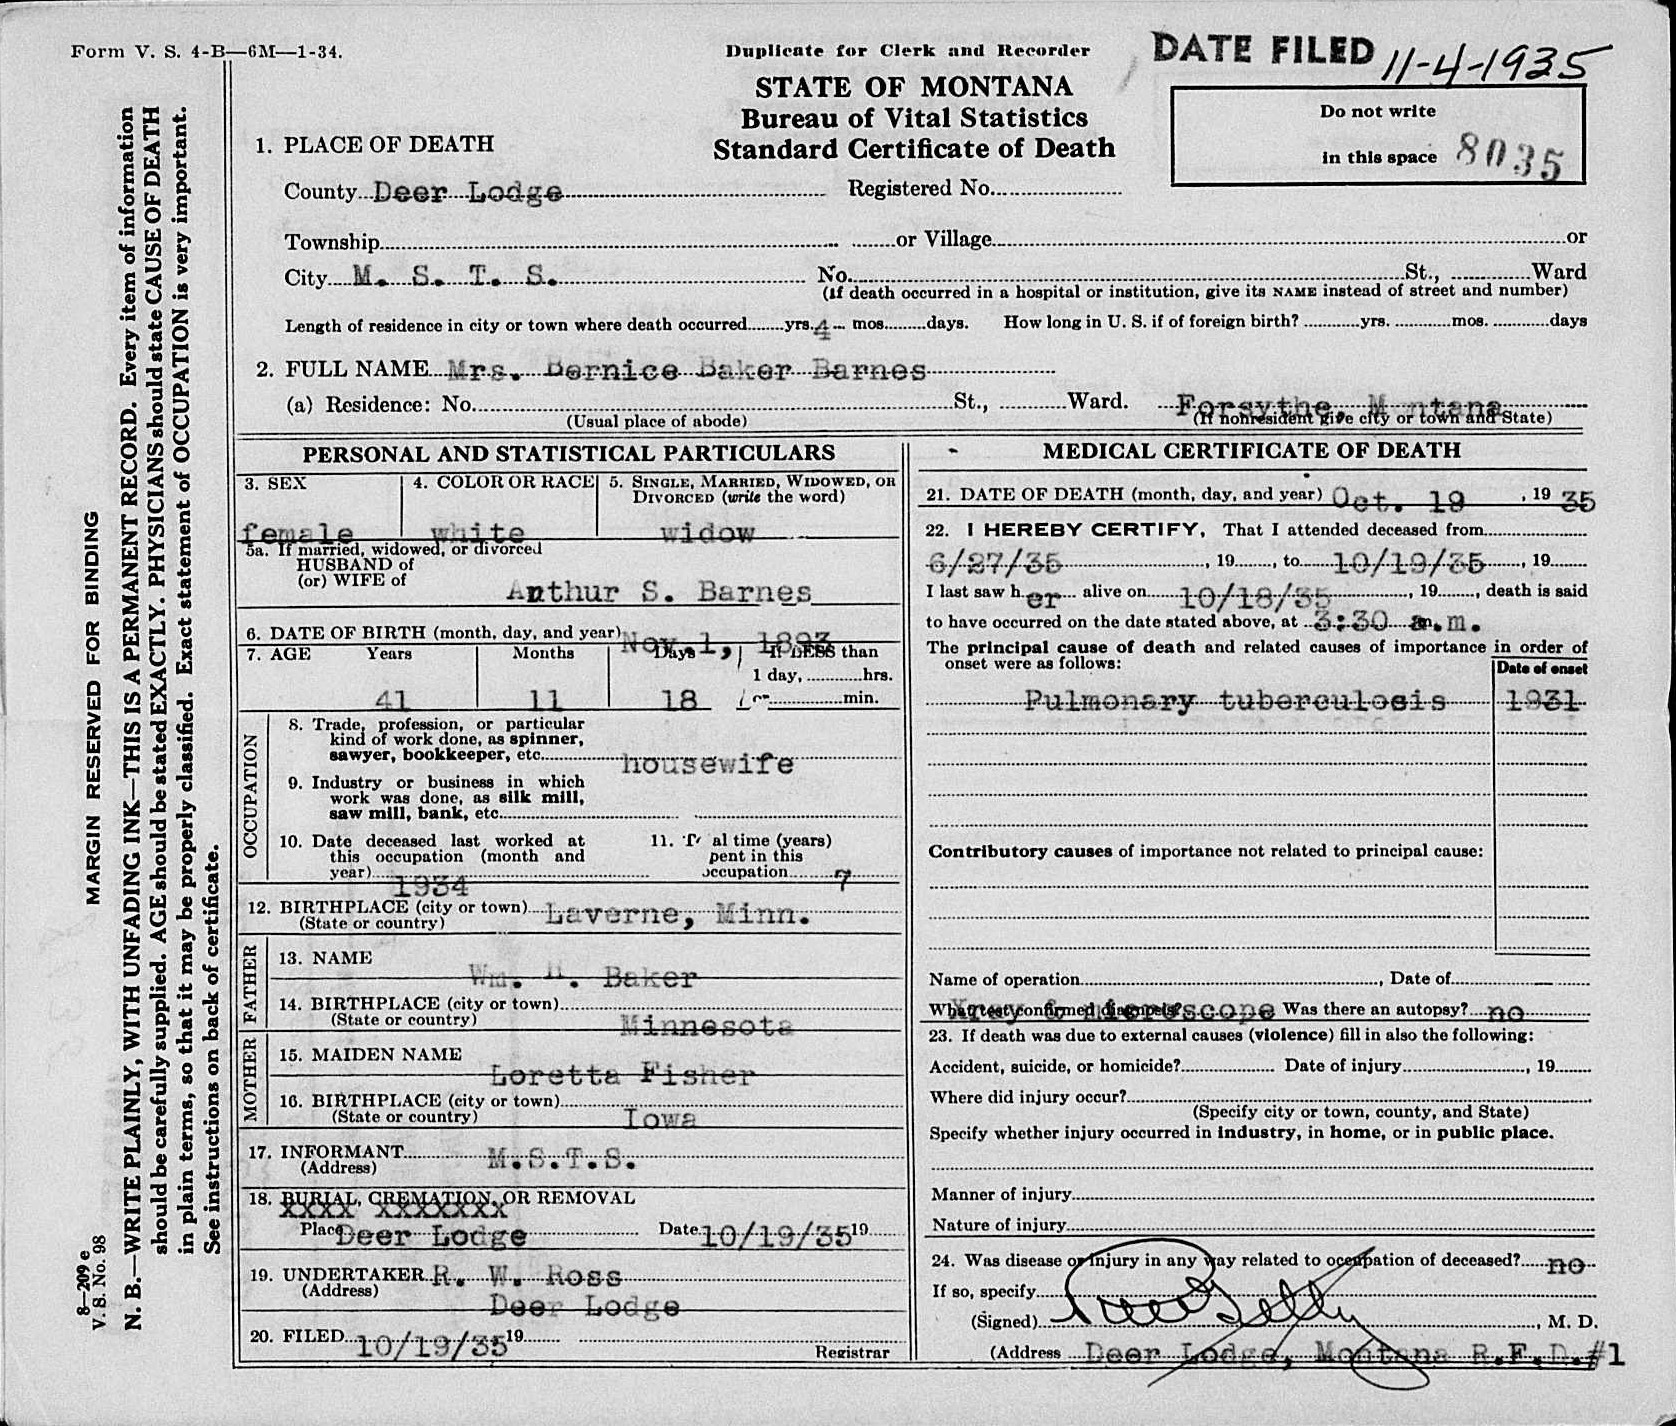 Form V. S. 4-B—6M—1-34.
Duplicate for Clerk and Recorder
DATE FILED 11-4-1935
STATE OF MONTANA
Bureau of Vital Statistics
Standard Certificate of Death
Do not write
in this space 8035
1. PLACE OF DEATH
County Deer Lodge Registered No.
Township or Village or
City M. S. T. S. No. St., Ward
(If death occurred in a hospital or institution, give its NAME instead of street and number)
Length of residence in city or town where death occurred yrs. 4 mos. days. How long in U. S. if of foreign birth? yrs. mos. days
2. FULL NAME Mrs. Bernice Baker Barnes
(a) Residence: No. St., Ward. Forsythe, Montana
(Usual place of abode) (If nonresident give city or town and State)
PERSONAL AND STATISTICAL PARTICULARS
3. SEX 4. COLOR OR RACE 5. SINGLE, MARRIED, WIDOWED, OR
DIVORCED (write the word)
female white widow
5a. If married, widowed, or divorced
HUSBAND of
(or) WIFE of
Arthur S. Barnes
6. DATE OF BIRTH (month, day, and year) Nov. 1, 1893
7. AGE Years Months Days If LESS than
1 day, hrs.
41 11 18 or min.
OCCUPATION
8. Trade, profession, or particular
kind of work done, as spinner,
sawyer, bookkeeper, etc. housewife
9. Industry or business in which
work was done, as silk mill,
saw mill, bank, etc.
10. Date deceased last worked at
this occupation (month and
year) 1934
11. T al time (years)
pent in this
occupation 7
12. BIRTHPLACE (city or town) Laverne, Minn.
(State or country)
FATHER
13. NAME
Wm. H. Baker
14. BIRTHPLACE (city or town)
(State or country) Minnesota
MOTHER
15. MAIDEN NAME
Loretta Fisher
16. BIRTHPLACE (city or town)
(State or country) Iowa
17. INFORMANT M.S.T.S.
(Address)
18. BURIAL, CREMATION, OR REMOVAL
XXXX XXXXXXX
Place Deer Lodge Date 10/19/35 19
19. UNDERTAKER R. W. Ross
(Address)
Deer Lodge
20. FILED 10/19/35 19
Registrar
MEDICAL CERTIFICATE OF DEATH
21. DATE OF DEATH (month, day, and year) Oct. 19, 19 35
22. I HEREBY CERTIFY, That I attended deceased from
6/27/35, 19, to 10/19/35, 19
I last saw her alive on 10/18/35, 19, death is said
to have occurred on the date stated above, at 3:30 a.m.
The principal cause of death and related causes of importance in order of
onset were as follows:
Date of onset
Pulmonary tuberculosis 1931
Contributory causes of importance not related to principal cause:
Name of operation, Date of
What test confirmed diagnosis? Xray & microscope Was there an autopsy? no
23. If death was due to external causes (violence) fill in also the following:
Accident, suicide, or homicide? Date of injury, 19
Where did injury occur?
(Specify city or town, county, and State)
Specify whether injury occurred in industry, in home, or in public place.
Manner of injury
Nature of injury
24. Was disease or injury in any way related to occupation of deceased? no
If so, specify
(Signed), M. D.
(Address Deer Lodge, Montana R.F.D.#1
MARGIN RESERVED FOR BINDING
N. B.—WRITE PLAINLY, WITH UNFADING INK—THIS IS A PERMANENT RECORD. Every item of information
should be carefully supplied. AGE should be stated EXACTLY. PHYSICIANS should state CAUSE OF DEATH
in plain terms, so that it may be properly classified. Exact statement of OCCUPATION is very important.
See instructions on back of certificate.
8—209 e
V. S. No. 98